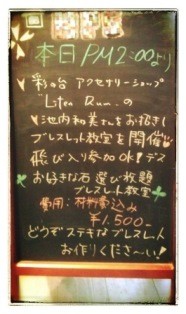 本日PM2:00より
彩の台 アクセサリーショップ
"Liten Run"の
池内和美さんをお招きし
ブレスレット教室を開催
飛び入り参加OK!デス
お好きな石 選び放題
ブレスレット教室
費用:材料費込み
¥1,500-
どうぞステキなブレスレット
お作りくださ〜い!